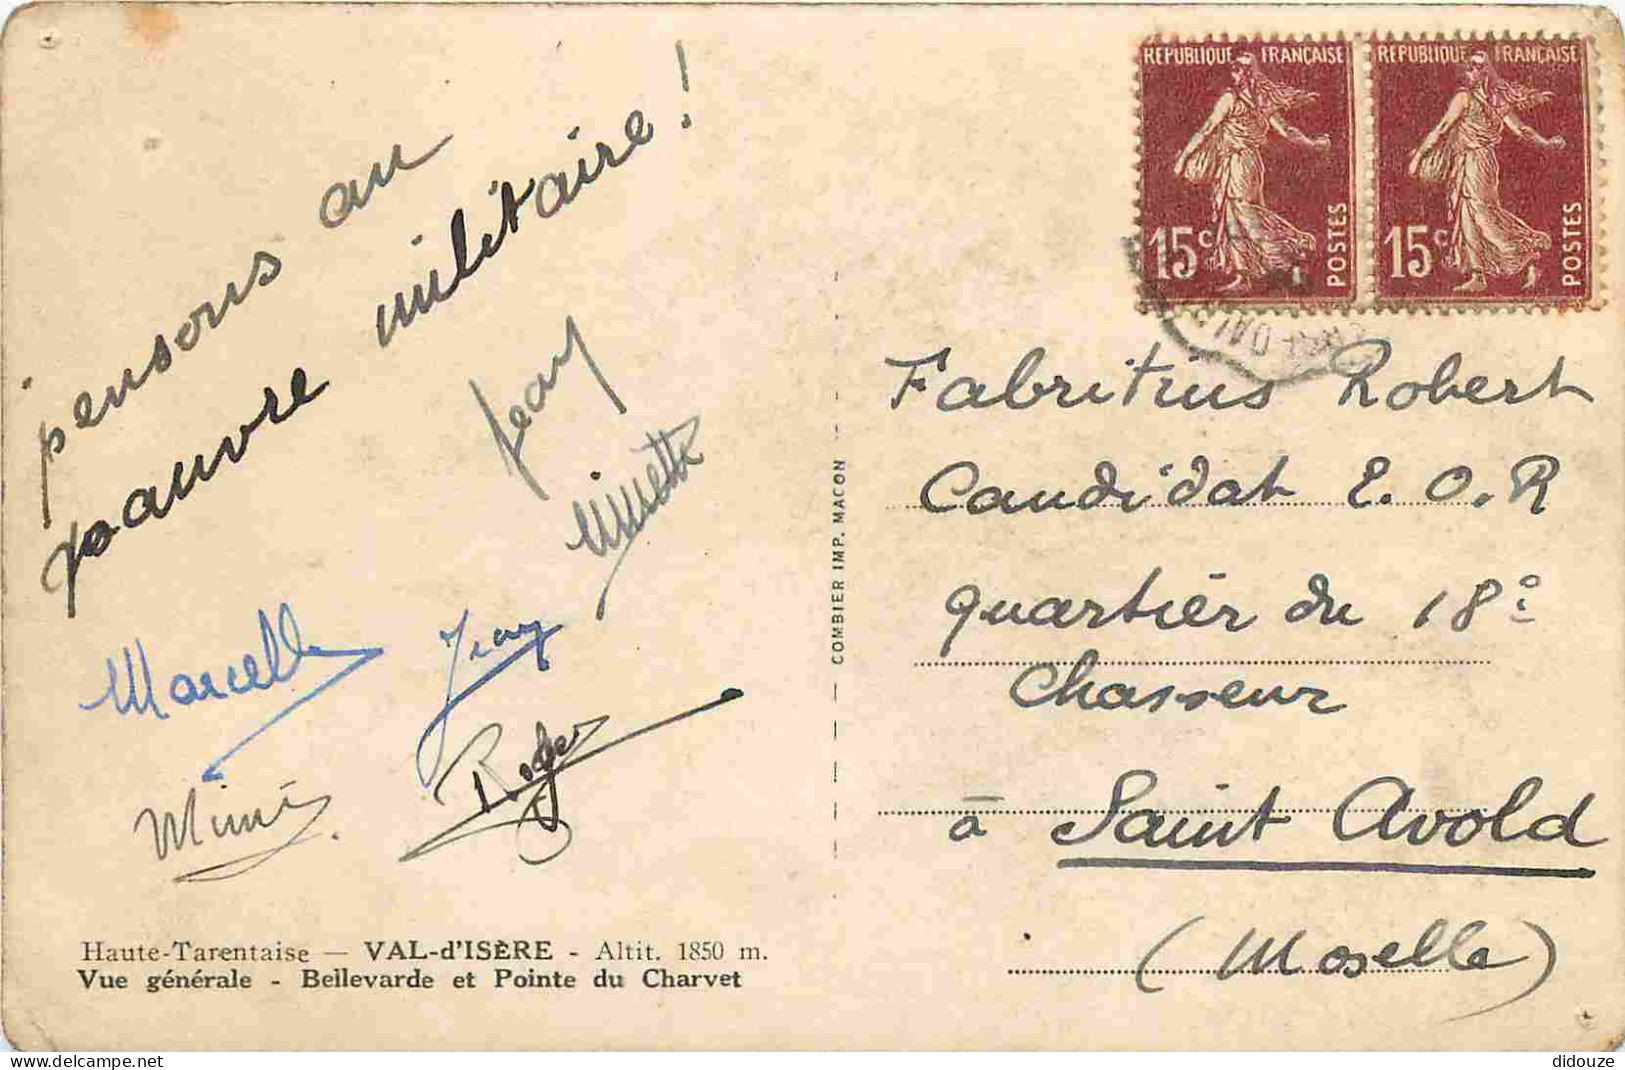 pensons au
pauvre militaire !
Jean
Minette
Marcelle
Jeany
Mimi
Roger
Haute-Tarentaise — VAL-d'ISÈRE - Altit. 1850 m.
Vue générale - Bellevarde et Pointe du Charvet
COMBIER IMP. MACON
REPUBLIQUE FRANÇAISE
15c POSTES
REPUBLIQUE FRANÇAISE
15c POSTES
Fabritius Robert
Candidat E.O.R
quartier du 18e
Chasseur
à Saint Avold
(Moselle)
didouze